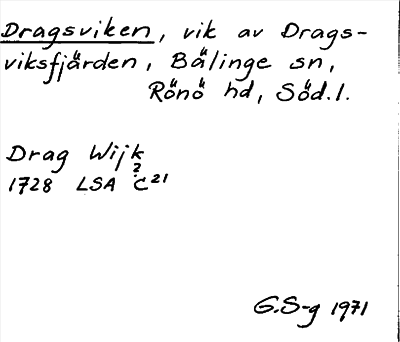 Dragsviken, vik av Drags-
viksfjärden, Bälinge sn,
Rönö hd, Söd.l.
Drag Wijk
?
1728 LSA C²¹
G.S-g 1971